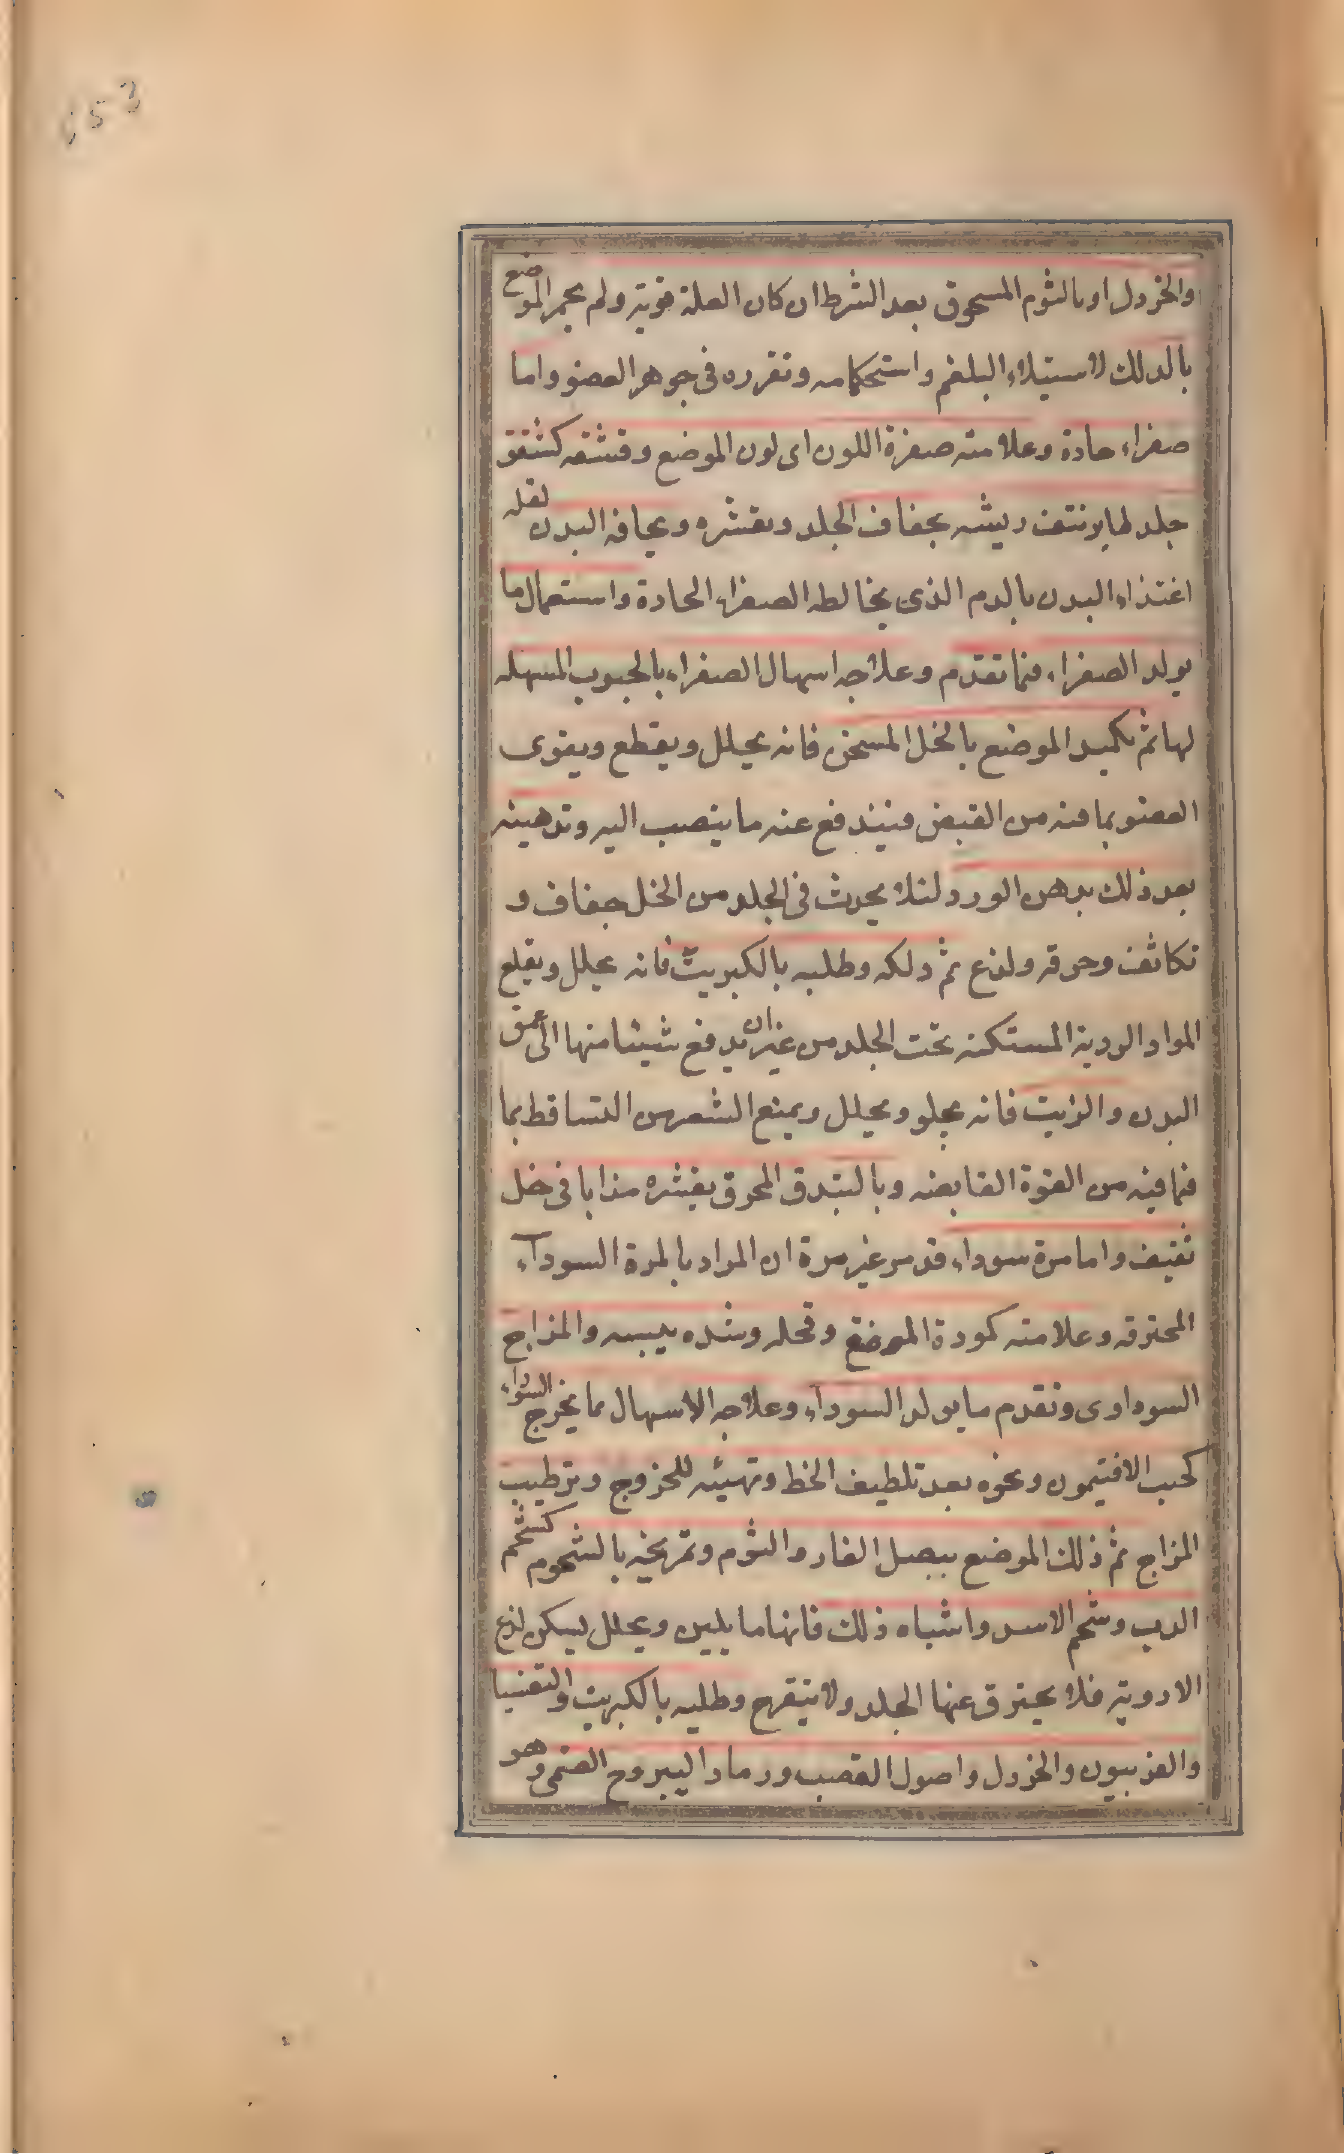 والخردل او بالثوم المسحوق بعد الشرط ان كان العلة قوية ولم يحمر الموضع
بالدلك لاستيلاء البلغم واستحكامه وتقرره فى جوهر العضو واما
صفراء حادة وعلامته صفرة اللون اى لون الموضع وقشفه كشفق
جلد طاير نتف ريشه بجفاف الجلد وتقشره ونحافة البدن لقلة
اغتذاء البدن بالدم الذى يخالطه الصفراء الحادة واستعمال ما
يولد الصفراء فيما تقدم وعلاجه اسهال الصفراء بالحبوب المسهله
لها ثم تكميد الموضع بالخل المسخن فانه يحلل ويقطع ويقوى
العضو بما فيه من القبض فيندفع عنه ما ينصب اليه وتدهينه
بعد ذلك بدهن الورد لئلا يحدث فى الجلد من الخل جفاف و
تكاثف وحرقة ولذع ثم دلكه وطليه بالكبريت فانه يحلل ويقلع
المواد الردية المستكنه تحت الجلد من غير ان يدفع شيئا منها الى عمق
البدن والزيت فانه يجلو ويحلل ويمنع الشعر من التساقط بما
فيه من القوة القابضه وبالبندق المحرق بقشره مذابا فى خل
ثقيف واما مرة سوداء قد مر غير مرة ان المراد بالمرة السودآء
المحترقه وعلامته كمودة الموضع وقحله وشده يبسه والمزاج
السوداوى وتقدم ما يولد السودآء وعلاجه الاسهال بما يخرج السوداء
كحب الافتيمون ونحوه بعد تلطيف الخلط وتهيئه للخروج وترطيب
المزاج ثم ذلك الموضع ببصل الفار والثوم وتمريخه بالشحوم كشحم
الدب وشحم الاسد واشباه ذلك فانها ما يلين ويحلل يسكن لذع
الادويه فلا يحترق عنها الجلد ولا يتقرح وطليه بالكبريت والتفسيا
والفربيون والخردل واصول القصب ورماد اليبروح الصنمى وهو